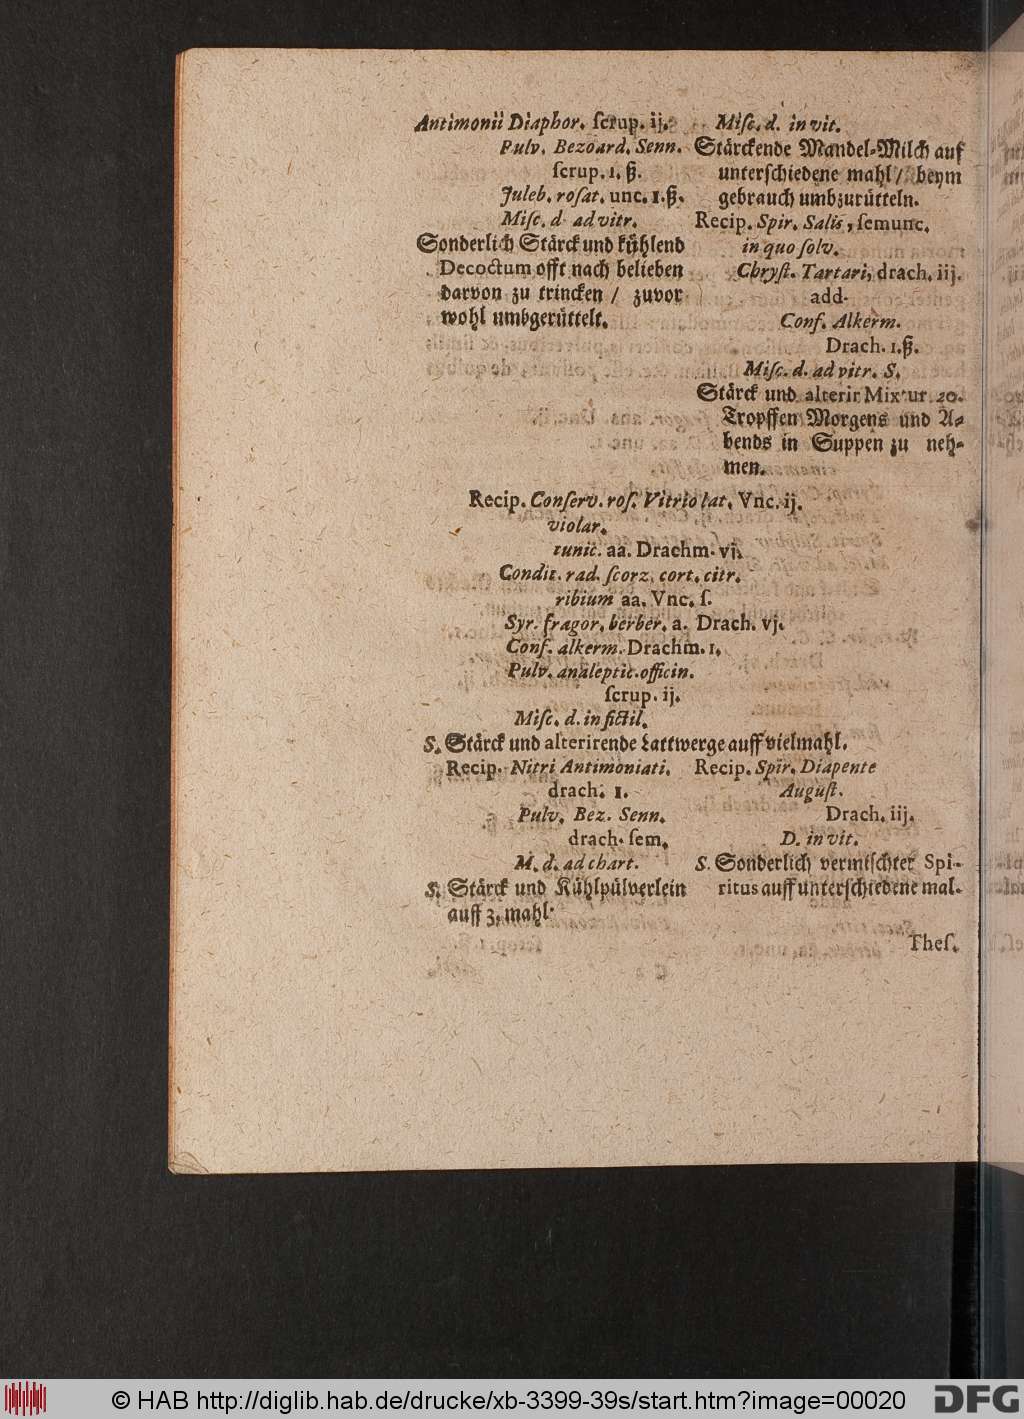 Antimonii Diaphor. ſcrup. ij.
Pulv. Bezoard. Senn.
ſcrup. 1. ß.
Juleb. roſat. unc. 1.ß.
Miſc. d. ad vitr.
Sonderlich Stärck und kühlend
Decoctum offt nach belieben
darvon zu trincken / zuvor
wohl umbgerüttelt.
Miſc. d. in vit.
Stärckende Mandel-Milch auf
unterſchiedene mahl / beym
gebrauch umbzurütteln.
Recip. Spir. Salis, ſemunc.
in quo ſolv.
Chryſt. Tartari, drach. iij.
add.
Conf. Alkerm.
Drach. 1.ß.
Miſc. d. ad vitr. S.
Stärck und alterir Mixtur 20.
Tropffen Morgens und A-
bends in Suppen zu neh-
men.
Recip. Conſerv. roſ. Vitriolat. Vnc. ij.
violar.
tunic. aa. Drachm. vj.
Condit. rad. ſcorz. cort. citr.
ribium aa. Vnc. ſ.
Syr. fragor. berber. a. Drach. vj.
Conf. alkerm. Drachm. 1.
Pulv. analeptic. officin.
ſcrup. ij.
Miſc. d. in fictil.
S. Stärck und alterirende Lattwerge auff vielmahl.
Recip. Nitri Antimoniati.
drach. 1.
Pulv. Bez. Senn.
drach. ſem.
M. d. ad chart.
S. Stärck und Kühlpülverlein
auff 3. mahl.
Recip. Spir. Diapente
Auguſt.
Drach. iij.
D. in vit.
S. Sonderlich vermiſchter Spi-
ritus auff unterſchiedene mal.
Theſ.
© HAB http://diglib.hab.de/drucke/xb-3399-39s/start.htm?image=00020
DFG